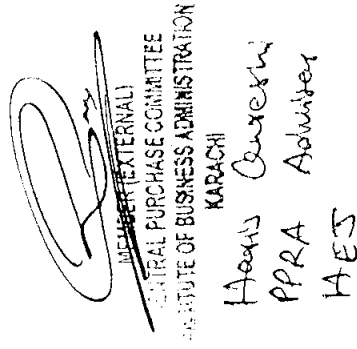 MEMBER (EXTERNAL)
CENTRAL PURCHASE COMMITTEE
INSTITUTE OF BUSINESS ADMINISTRATION
KARACHI
Haris Qureshi
PPRA Adviser
HEJ